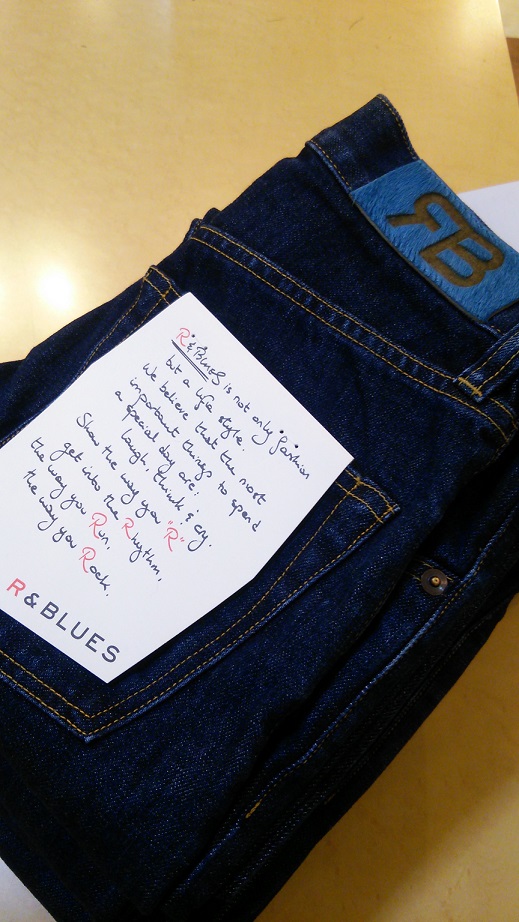 RB
R & BLUES is not only fashion
but a life style.
We believe that the most
important things to spend
a special day are:
laugh, think & cry.
Show the way you "R"
get into the Rhythm,
the way you Run,
the way you Rock.
R & BLUES